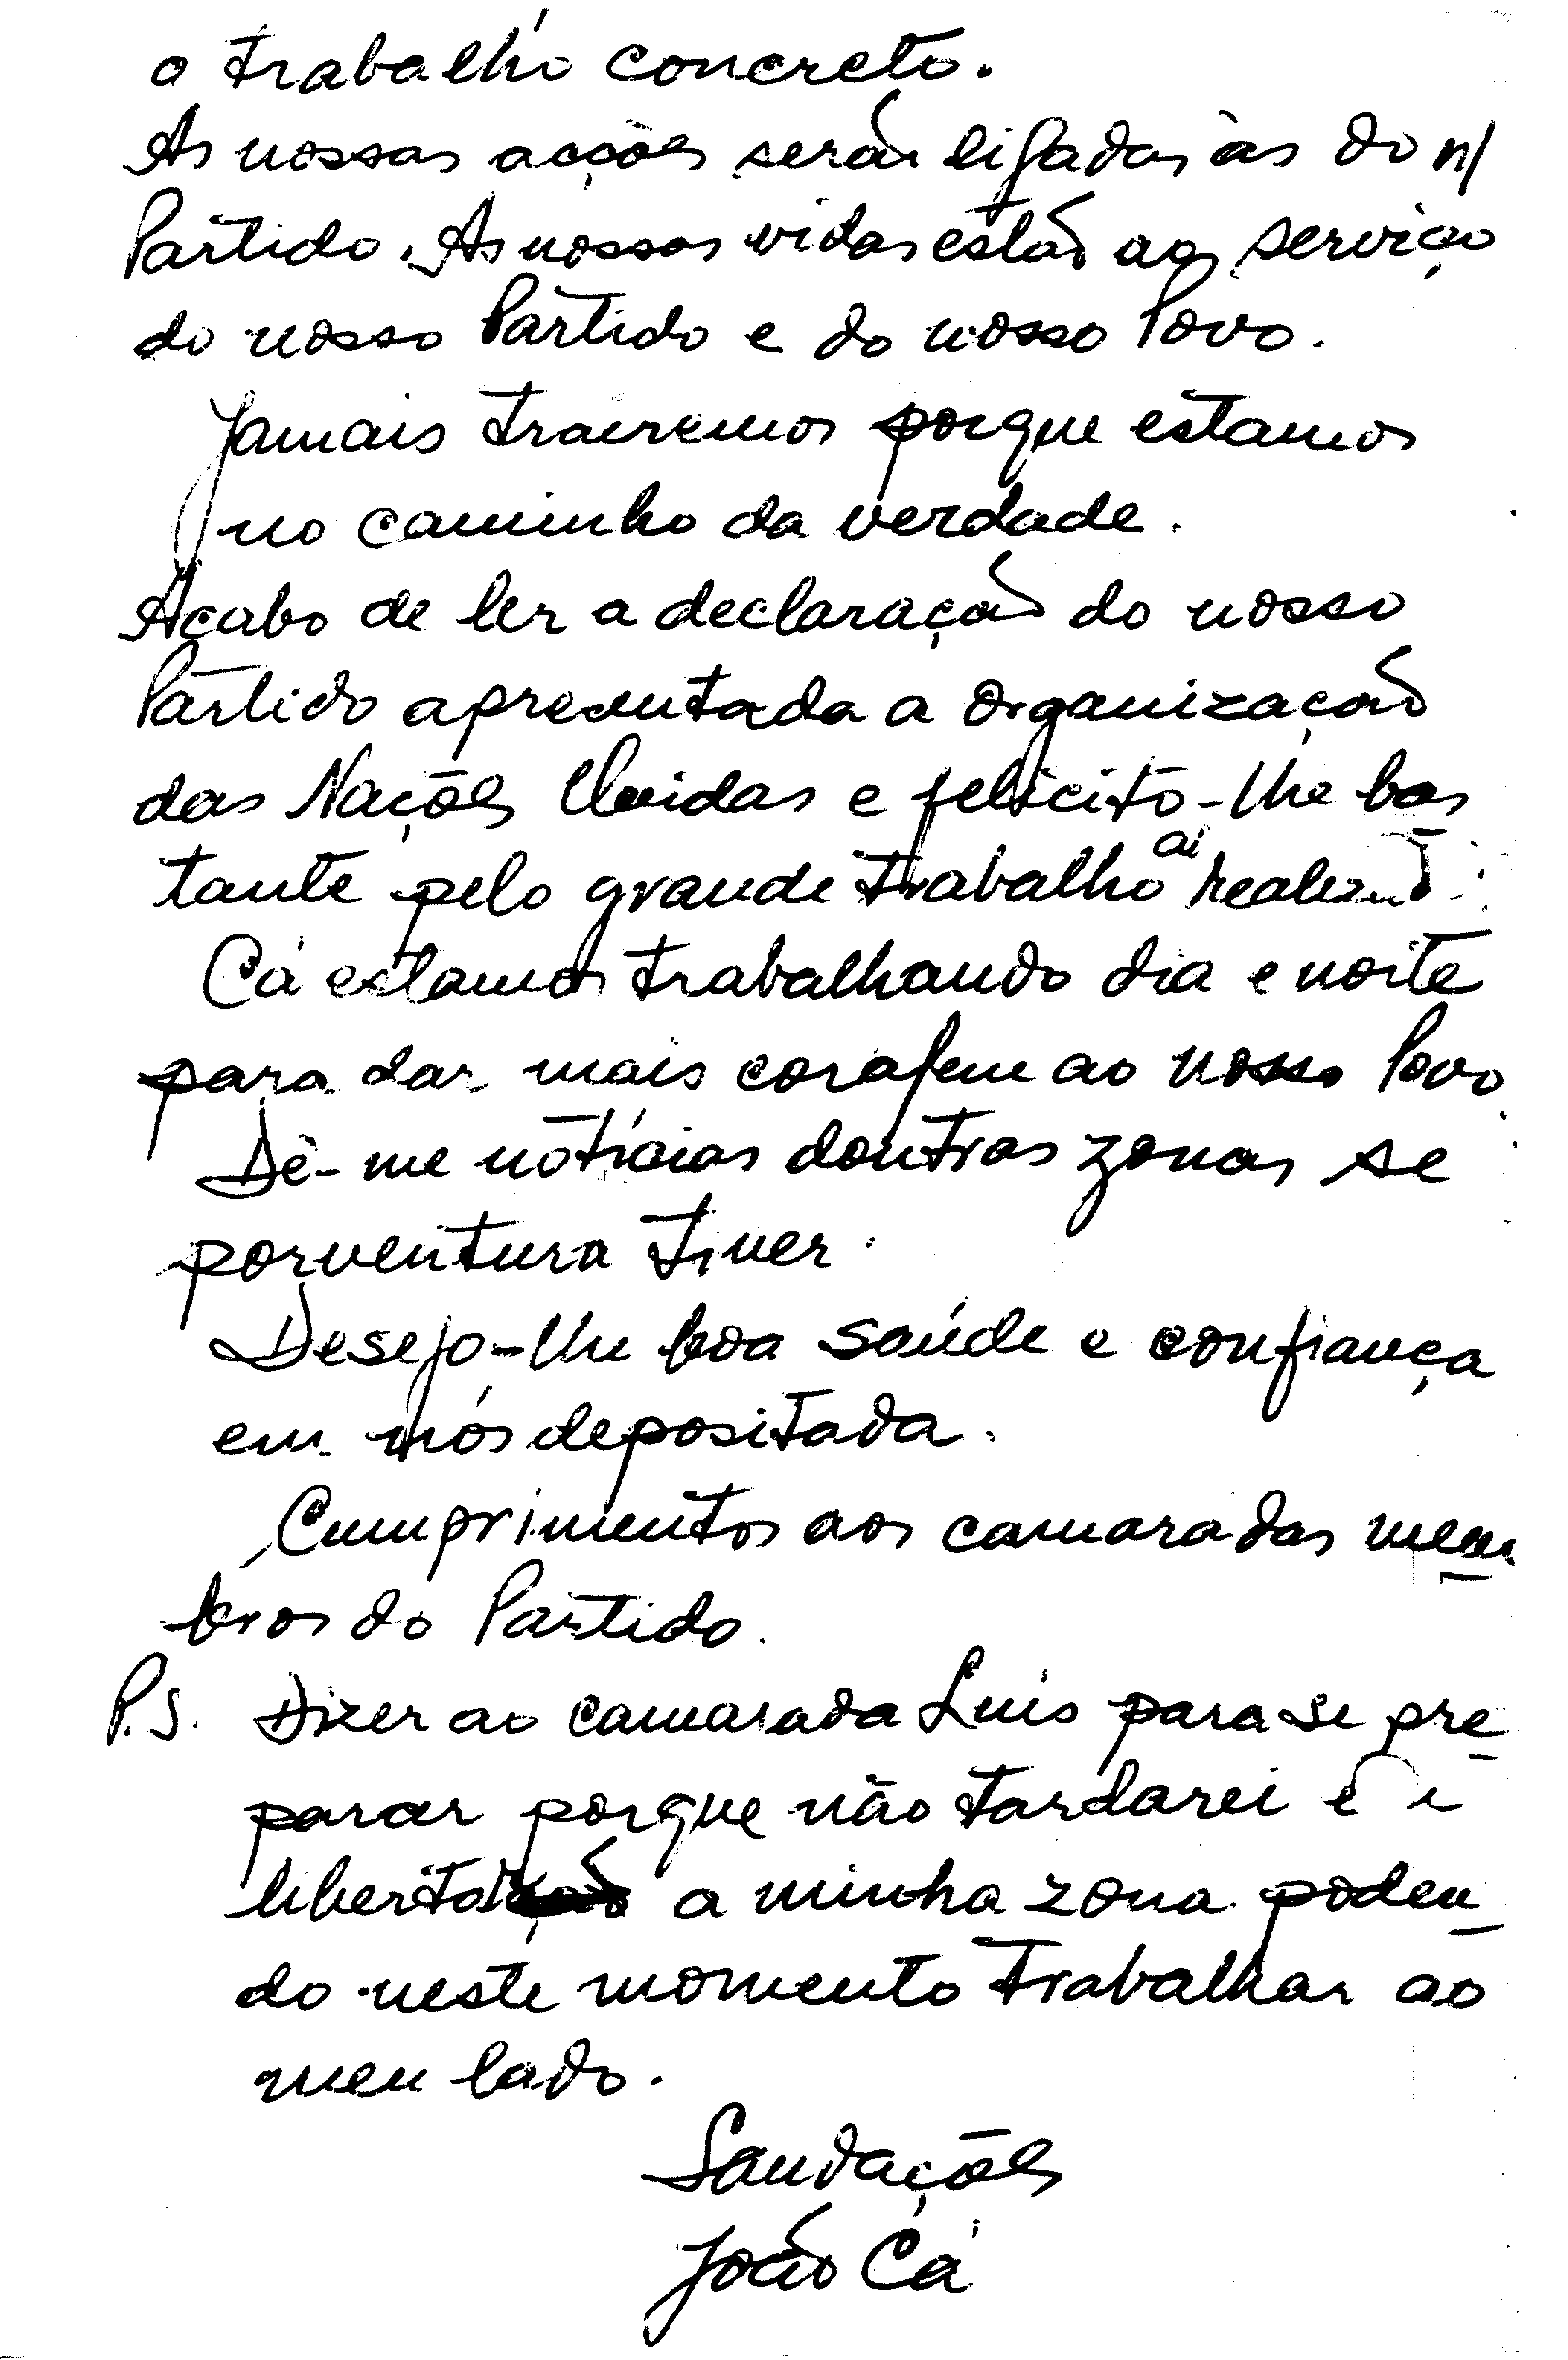 o trabalho concreto.
As nossas acções serão ligadas às do n/
Partido. As nossas vidas estão ao serviço
do nosso Partido e do nosso Povo.
Jamais trairemos porque estamos
no caminho da verdade.
Acabo de ler a declaração do nosso
Partido apresentada a Organização
das Nações Unidas e felicito-lhe bas
tante pelo grande trabalho aí
Cá estamos trabalhando dia e noite
para dar mais coragem ao nosso Povo
Dê-me notícias doutras zonas se
porventura tiver.
Desejo-lhe boa saúde e confiança
em nós depositada.
Cumprimentos aos camaradas mem
bros do Partido.
P.S. Dizer ao camarada Luís para se pre
parar porque não tardarei e
libertar a minha zona poden
do neste momento trabalhar ao
meu lado.
Saudações
João Cá